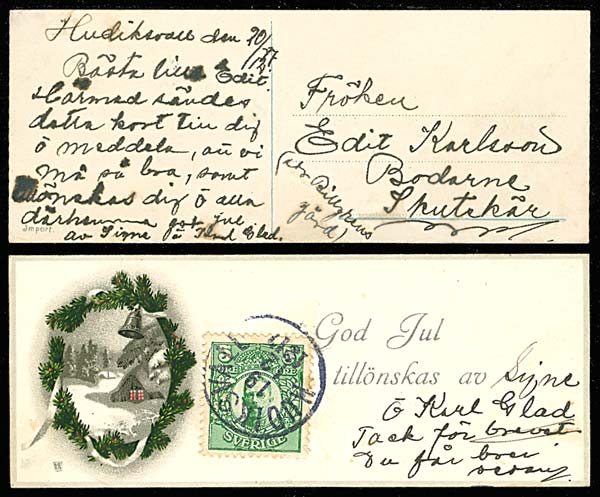 Hudiksvall den 20/12 17
Bästa lilla Edit.
Härmed sändes
detta kort till dig
o meddela, att vi
må så bra, samt
tillönskas dig o alla
därhemma god Jul
av Signe o Karl Glad.
Import.
Fröken
Edit Karlsson
Bodarne
Skutskär
gård
God Jul
tillönskas av Signe
o Karl Glad
Tack för brevet
Du får brev
SVERIGE